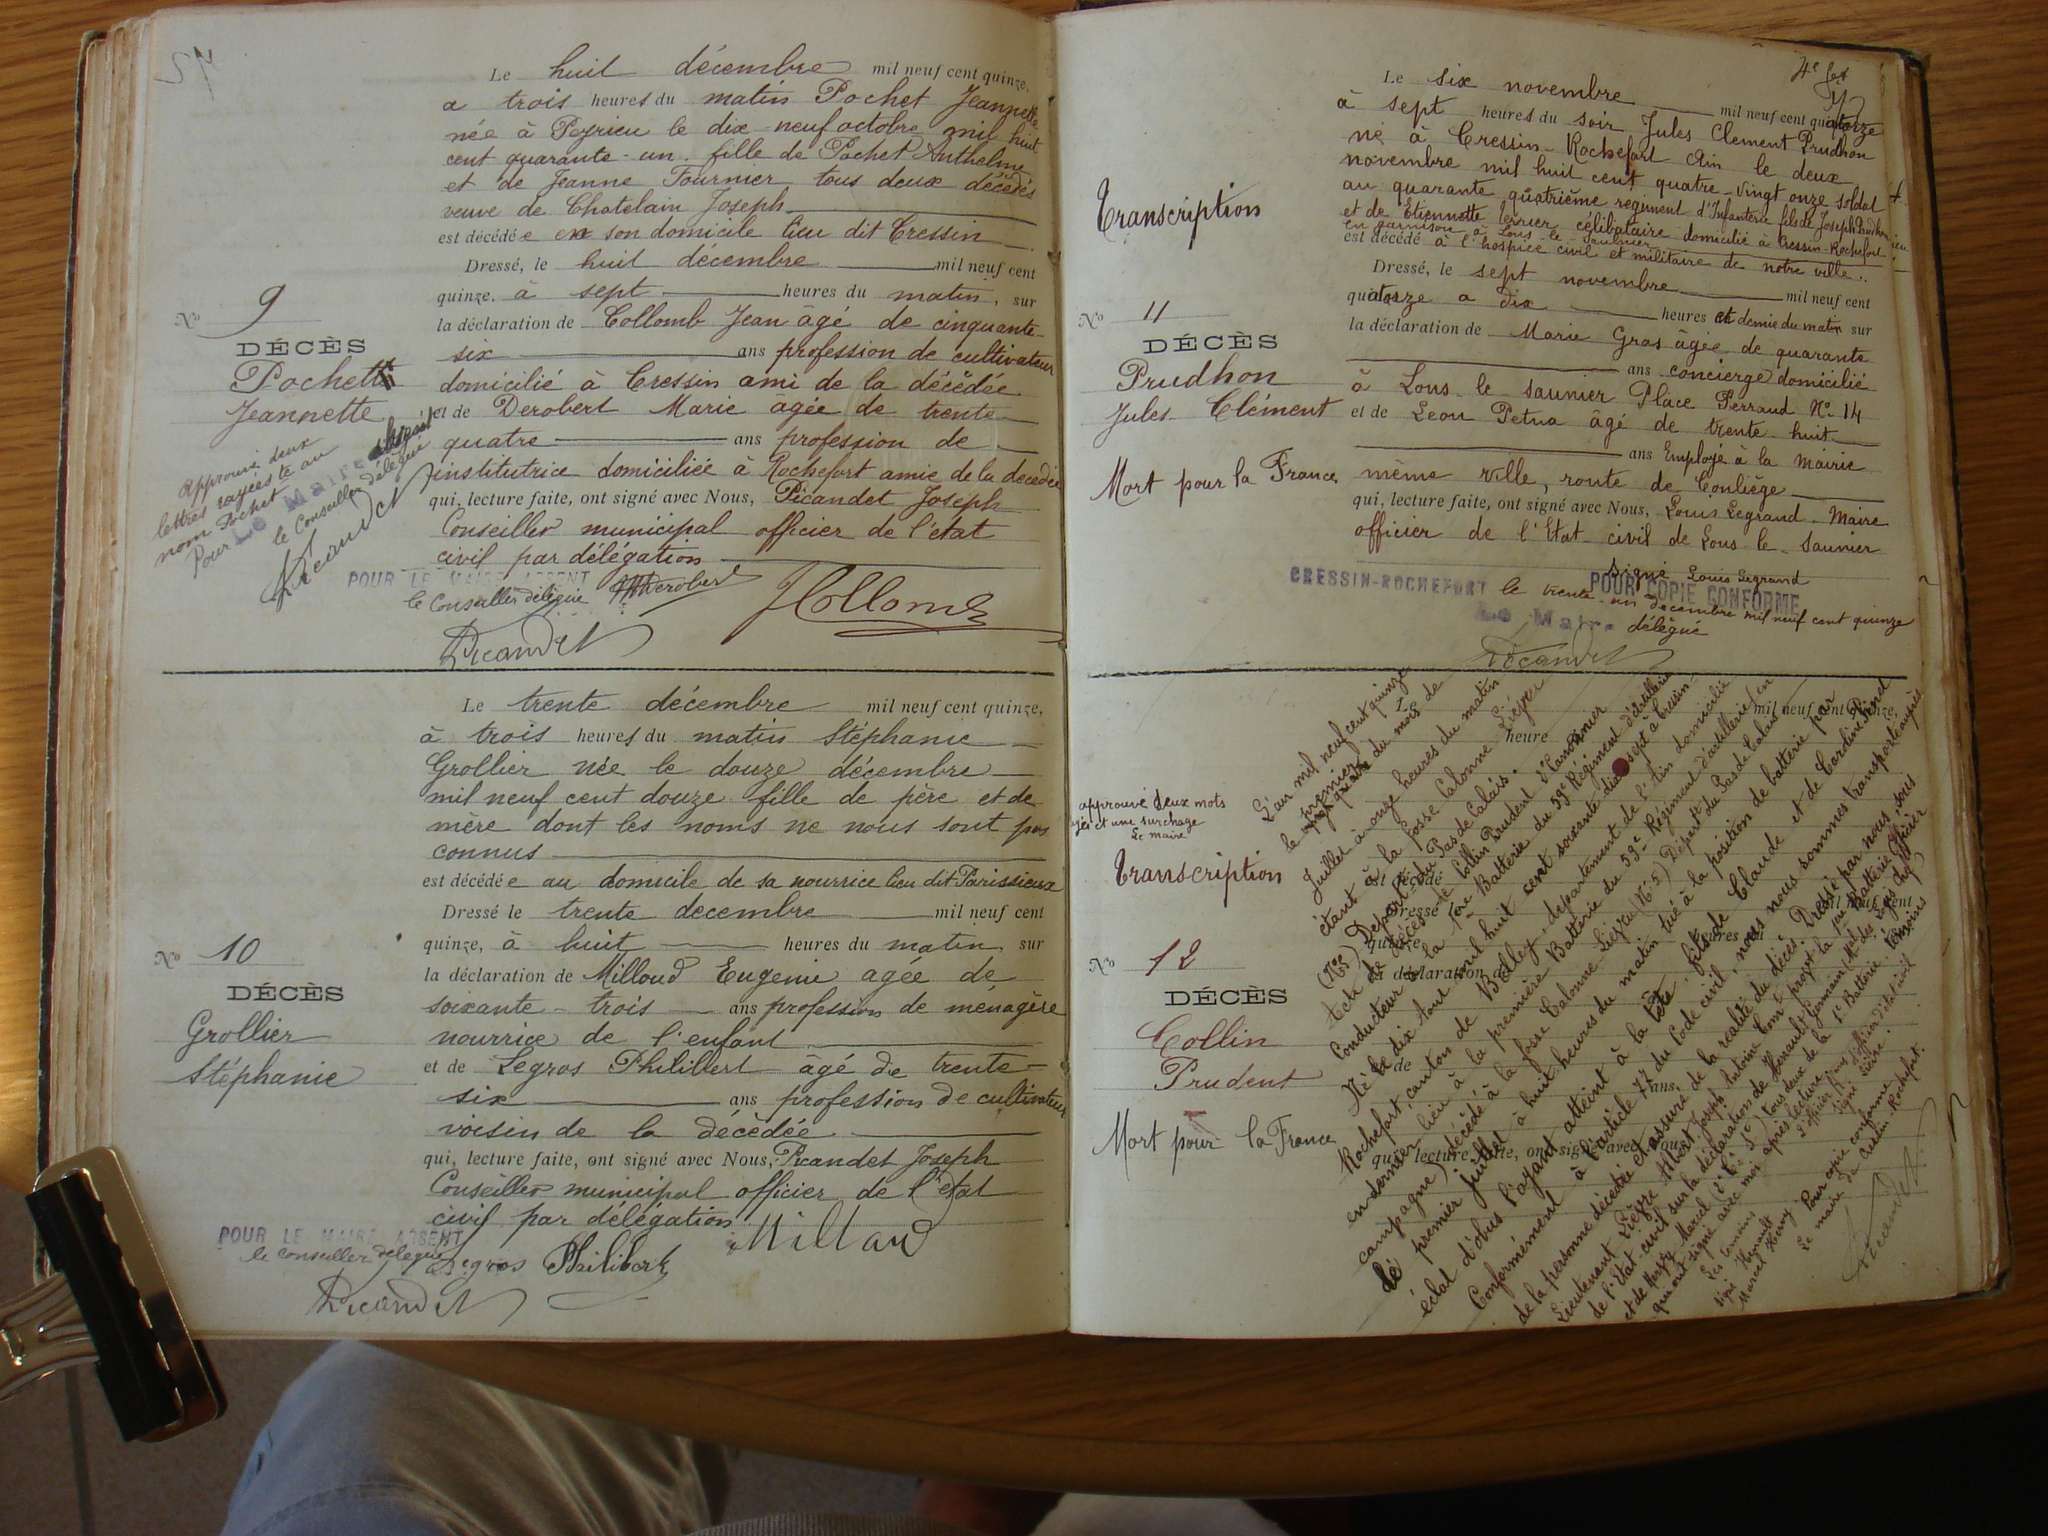 57
Le huit décembre mil neuf cent quinze,
a trois heures du matin Pochet Jeannette
née à Peyrieu le dix-neuf octobre mil huit
cent quarante-un fille de Pochet Anthelme
et de Jeanne Fournier tous deux décédés
veuve de Chatelain Joseph
est décédée en son domicile lieu dit Cressin
Dressé, le huit décembre mil neuf cent
quinze, à sept heures du matin, sur
la déclaration de Collomb Jean âgé de cinquante-
six ans profession de cultivateur
domicilié à Cressin ami de la décédée
et de Derobert Marie âgée de trente
quatre ans profession de
institutrice domiciliée à Rochefort amie de la décédée
qui, lecture faite, ont signé avec Nous, Picandet Joseph
Conseiller municipal officier de l'état
civil par délégation
POUR LE MAIRE ABSENT
le Conseiller délégué MDerobert JCollomb
Picandet
No 9
DÉCÈS
Pochet
Jeannette
approuvé deux
lettres rayées te au
nom Pochet
Pour Le Maire absent
le Conseiller délégué
Picandet
Le trente décembre mil neuf cent quinze,
à trois heures du matin Stéphanie
Grollier née le douze décembre
mil neuf cent douze fille de père et de
mère dont les noms ne nous sont pas
connus
est décédée au domicile de sa nourrice lieu dit Parissieux
Dressé le trente decembre mil neuf cent
quinze, à huit heures du matin, sur
la déclaration de Milloud Eugenie agée de
soixante-trois ans profession de ménagère
nourrice de l'enfant
et de Legros Philibert âgé de trente-
six ans profession de cultivateur
voisin de la décédée
qui, lecture faite, ont signé avec Nous, Picandet Joseph
Conseiller municipal officier de l'état
civil par délégation
POUR LE MAIRE ABSENT
le Conseiller délégué Legros Philibert Millaud
Picandet
No 10
DÉCÈS
Grollier
Stéphanie
4e
Le six novembre mil neuf cent quatorze
à sept heures du soir Jules Clement Prudhon
né à Cressin-Rochefort Ain le deux
novembre mil huit cent quatre-vingt onze soldat
au quarante quatrième regiment d'Infanterie fils de Joseph Prudhon
et de Etiennette Terrier célibataire domicilié à Cressin-Rochefort
en garnison à Lons le Saunier
est décédé à l'hospice civil et militaire de notre ville.
Dressé, le sept novembre mil neuf cent
quatorze a dix heures et demie du matin sur
la déclaration de Marie Gras âgée de quarante
ans concierge domicilié
à Lons-le saunier Place Perraud No 14
et de Leon Petua âgé de trente-huit
ans Employé à la mairie
même ville, route de Conliège
qui, lecture faite, ont signé avec Nous, Louis Legrand-Maire
officier de l'Etat-civil de Lons le-Saunier
signé Louis Legrand
CRESSIN-ROCHEFORT le trente-un décembre mil neuf cent quinze
POUR COPIE CONFORME
Le Maire délégué
Picandet
Transcription
No 11
DÉCÈS
Prudhon
Jules Clément
Mort pour la France
approuvé deux mots
et une surchage
Le maire
Transcription
No 12
DÉCÈS
Collin
Prudent
Mort pour la France
Le mil neuf cent quinze,
heure
est décédé
Dressé mil neuf cent
quinze heures
la déclaration de
et de
ans
qui, lecture faite, ont signé avec Nous
L'an mil neuf cent quinze
le premier du mois de
Juillet à onze heures du matin
étant à la fosse Calonne Liéger
(No 5) Départt du Pas de Calais.
Acte de décès de Collin Prudent d'Eurdonner
Conducteur à la 1ère Batterie du 59e Régiment d'artillerie
Né le dix Aout mil huit cent soixante dix sept à Cressin-
Rochefort, canton de Belley, département de l'Ain domicilié
en dernier lieu à la première Batterie du 59e Régiment d'artillerie en
campagne) décédé à la fosse Calonne-Liégre (No 5) Départt du Pas de Calais
le premier Juillet à huit heures du matin tué à la position de batterie par
éclat d'obus l'ayant atteint à la tête, fils de Claude et de Caroline
Conformément à l'article 77 du Code civil, nous nous sommes transporté auprès
de la personne décédée et assuré de la realité du décès. Dressé par nous sous
Lieutenant Lègre Albert Joseph Antoine la 1ère Batterie officier
de l'Etat civil sur la déclaration de Hénault Germain Mal des logis chef
et de Marcel Henry tous deux de la 1e Batterie témoins
qui ont signé avec moi après lecture
Les témoins L'officier d'état civil
signé Hénault signé Lègre.
Marcel Henry Pour copie conforme
Le maire de Cressin Rochefort.
Picandet